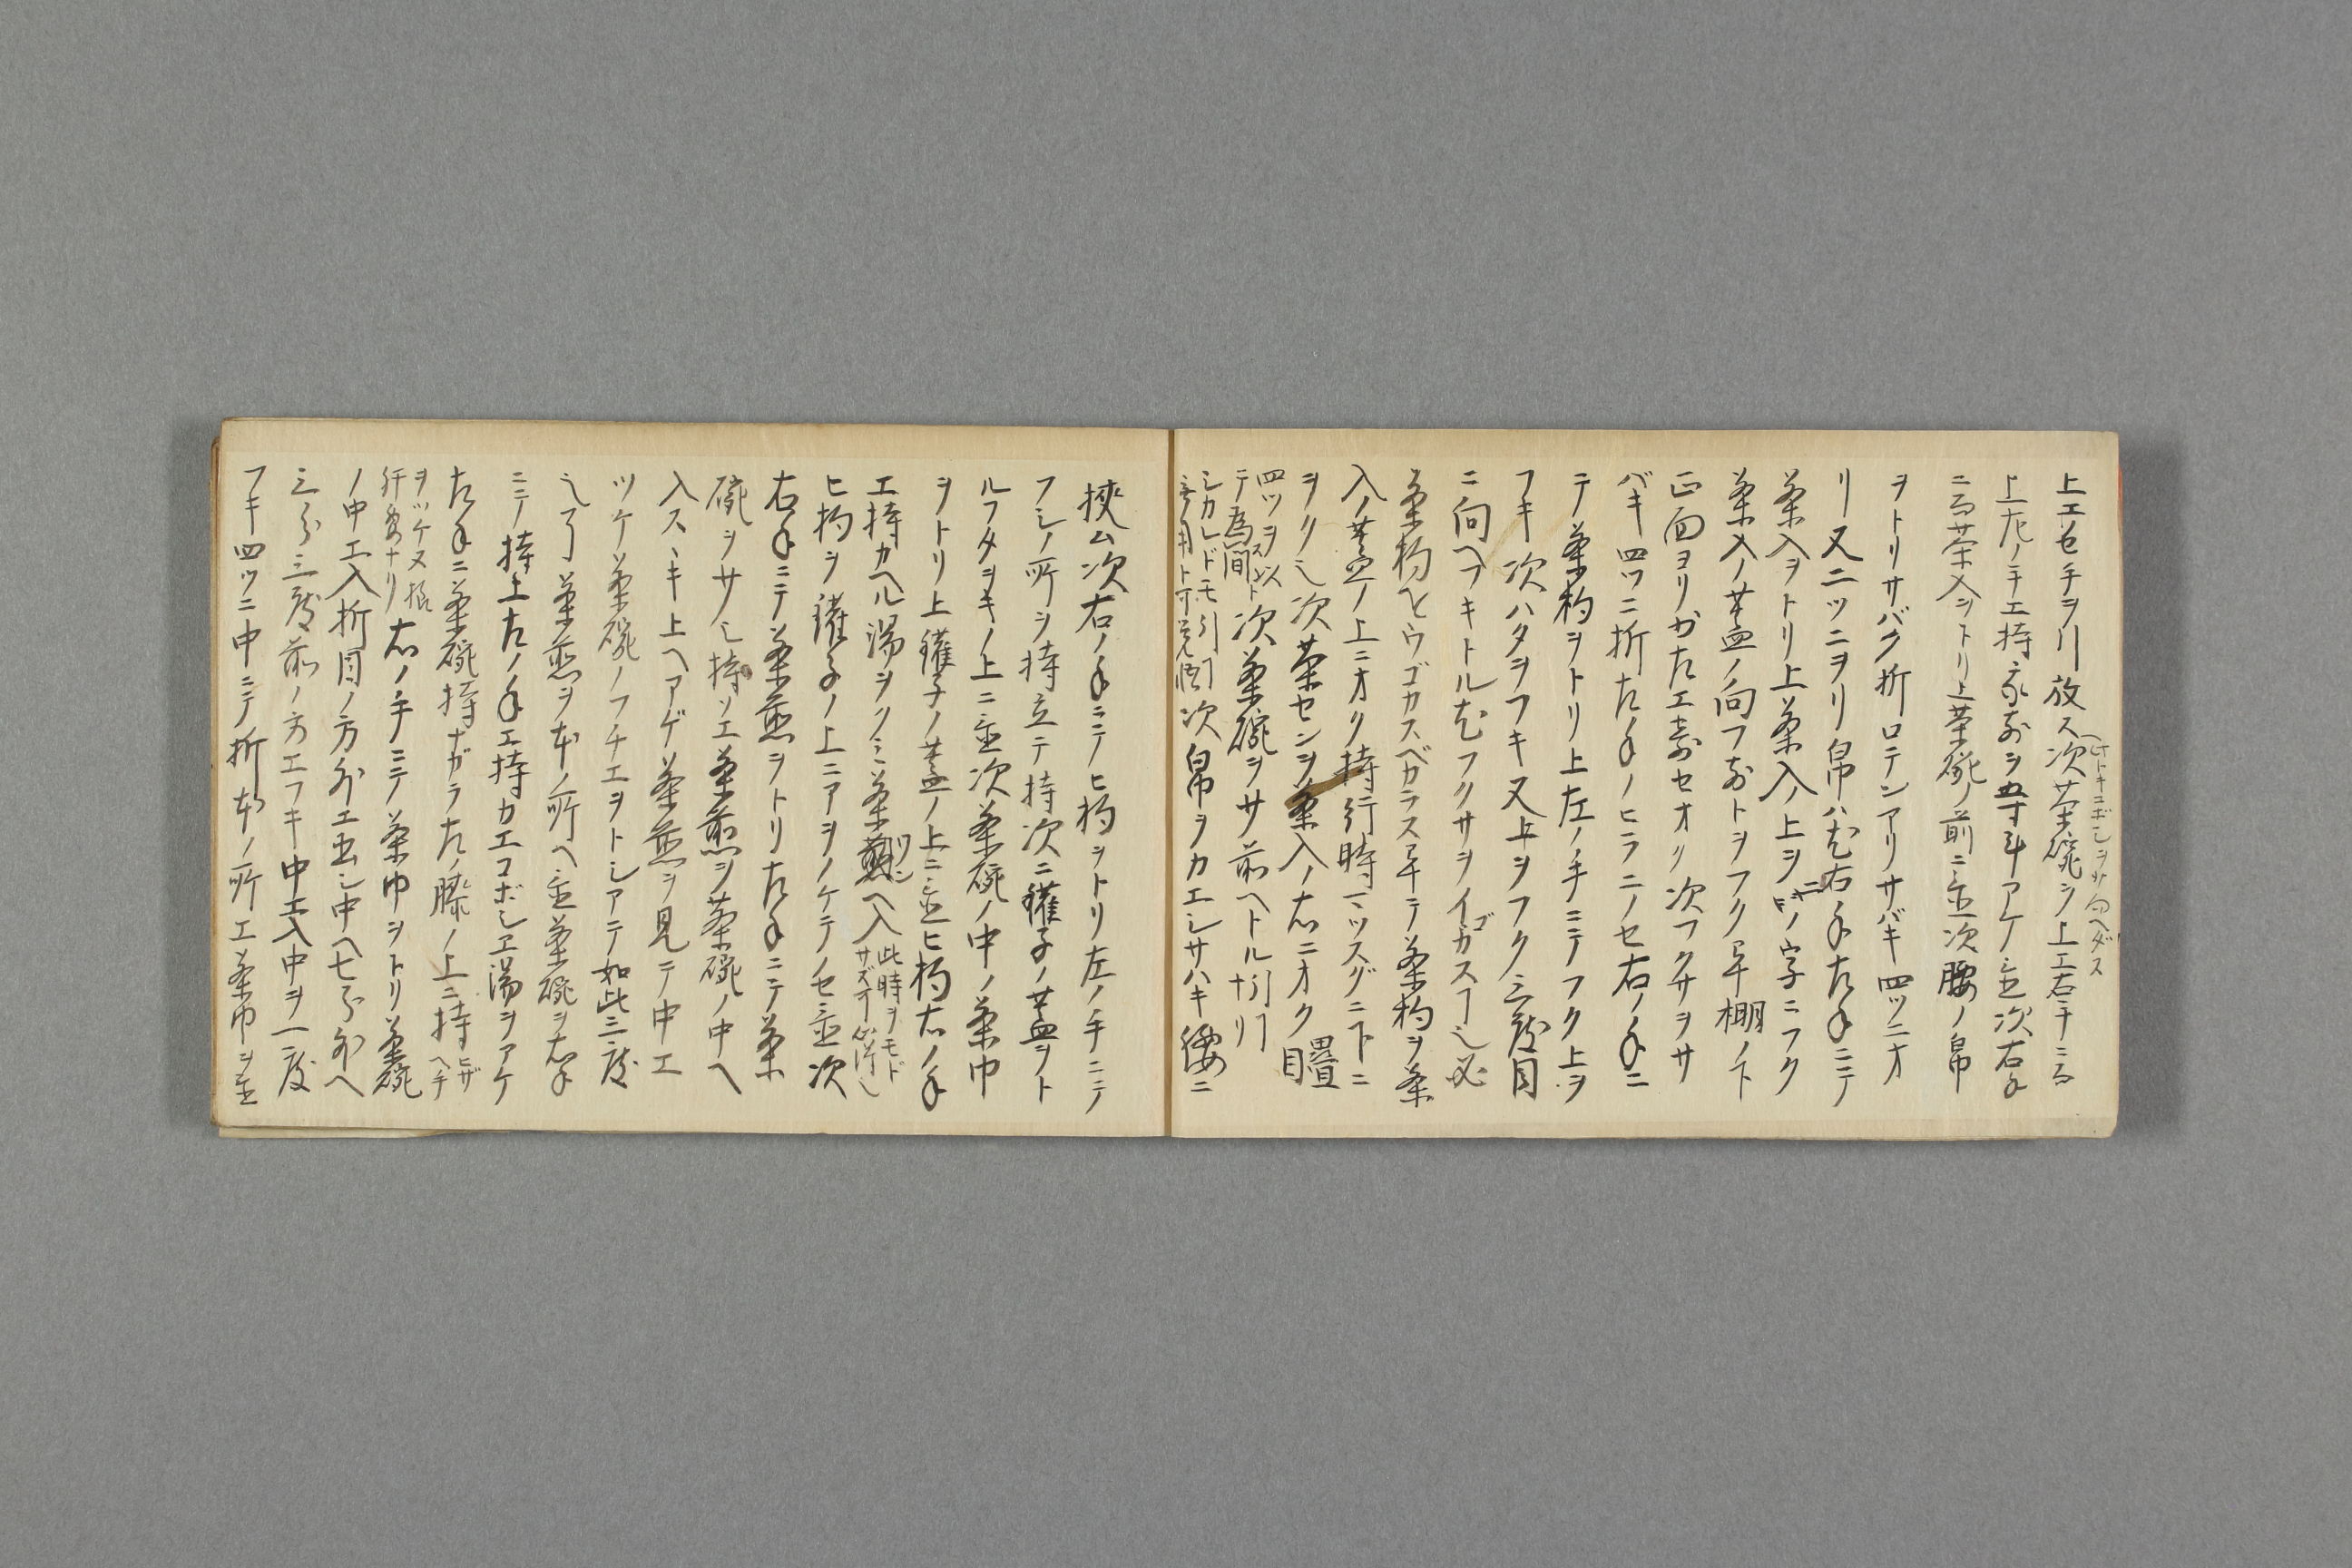 上エセ手ヲ引放ス次茶碗ヲ上エ右手ニ而
上左ノ手エ持家前ヲ五寸斗アケ置次右手
ニ而茶入ヲトリ上茶碗ノ前ニ置次腰ノ帛
ヲトリサバク折ロテンアリサバキ四ツニオ
リ又二ツニヲリ帛ハ右手左手ニテ
茶入ヲトリ上茶入ノ上ヲ二ノ字ニフク
茶入ノ蓋ノ向フ前トヲフク畢棚ノ下
正面ヨリ左エ寄セオク次フクサヲサ
バキ四ツニ折左手ノヒラニノセ右ノ手ニ
テ茶杓ヲトリ上左ノ手ニテフク上ヲ
フキ次ハタヲフキ又上ヲフク三度目
ニ向ヘフキトル尤フクサヲイゴカス
茶杓ヲウゴカスベカラス畢テ茶杓ヲ茶
入ノ蓋ノ上ニオク持行時マツスグニ下ニ
ヲク也次茶センヲ茶入ノ右ニオク畳目
四ツヲ以
テ為間ス
次茶碗ヲサ前ヘトル
シカレドモ
次帛ヲカエシサハキ腰ニ
挾ム次右ノ手ニテヒ杓ヲトリ左ノ手ニテ
フシノ所ヲ持立テ持次ニ鑵子ノ蓋ヲト
ルフタヲキノ上ニ置次茶碗ノ中ノ茶巾
ヲトリ上鑵子ノ蓋ノ上ニ置ヒ杓右ノ手
エ持カヘル湯ヲクミ茶碗ヘ入
此時ヲモド
ヒ杓ヲ鑵子ノ上ニアヲノケテノセ置次
右手ニテ茶筌ヲトリ左手ニテ茶
碗ヲサノミ持ソエ茶筌ヲ茶碗ノ中ヘ
入スヽキ上ヘアゲ茶筌ヲ見テ中エ
ツケ茶碗ノフチエヲトシアテ如此三度
シ了茶筌ヲ本ノ所ヘ置茶碗ヲ右手
ニテ持上左ノ手エ持カエコボシエ湯ヲアケ
左手ニ茶碗持ナガラ左ノ膝ノ上ニ持
ヒザヘ手
ヲツケヌ様
右ノ手ニテ茶巾ヲトリ茶碗
ノ中エ入折目ノ方外エ出シ中ヘ七分外ヘ
三分三度前ノ方エフキ中エ入中ヲ一度
フキ四ツニ中ニテ折本ノ所エ茶巾ヲ置